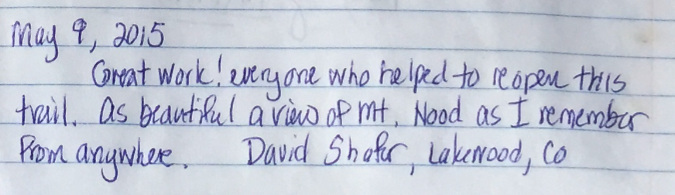 May 9, 2015
Great work! everyone who helped to reopen this
trail. As beautiful a view of Mt. Hood as I remember
from anywhere. David Shafer, Lakewood, Co